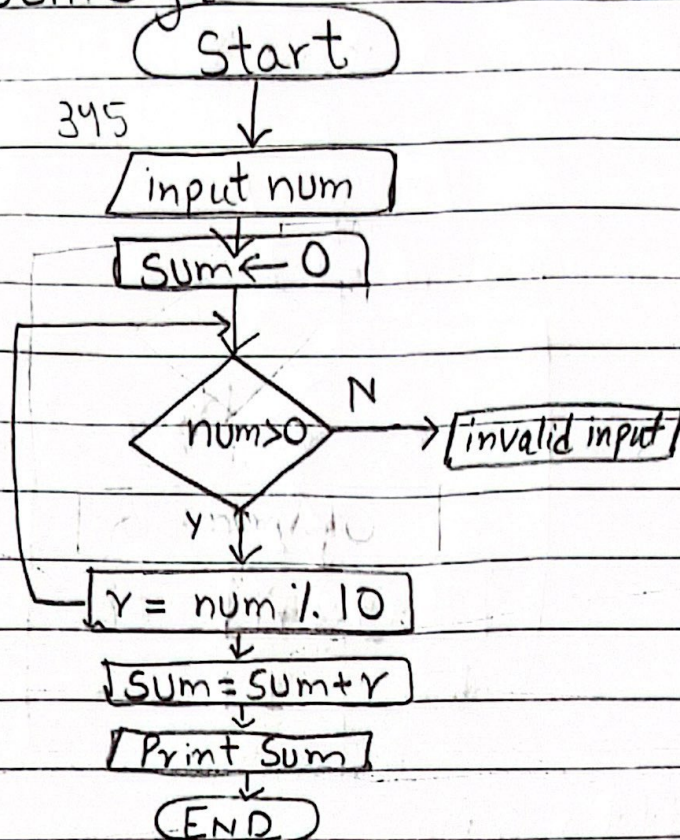 Start
345
input num
Sum ← 0
num>0
N
invalid input
Y
r = num % 10
Sum = Sum + r
Print Sum
END